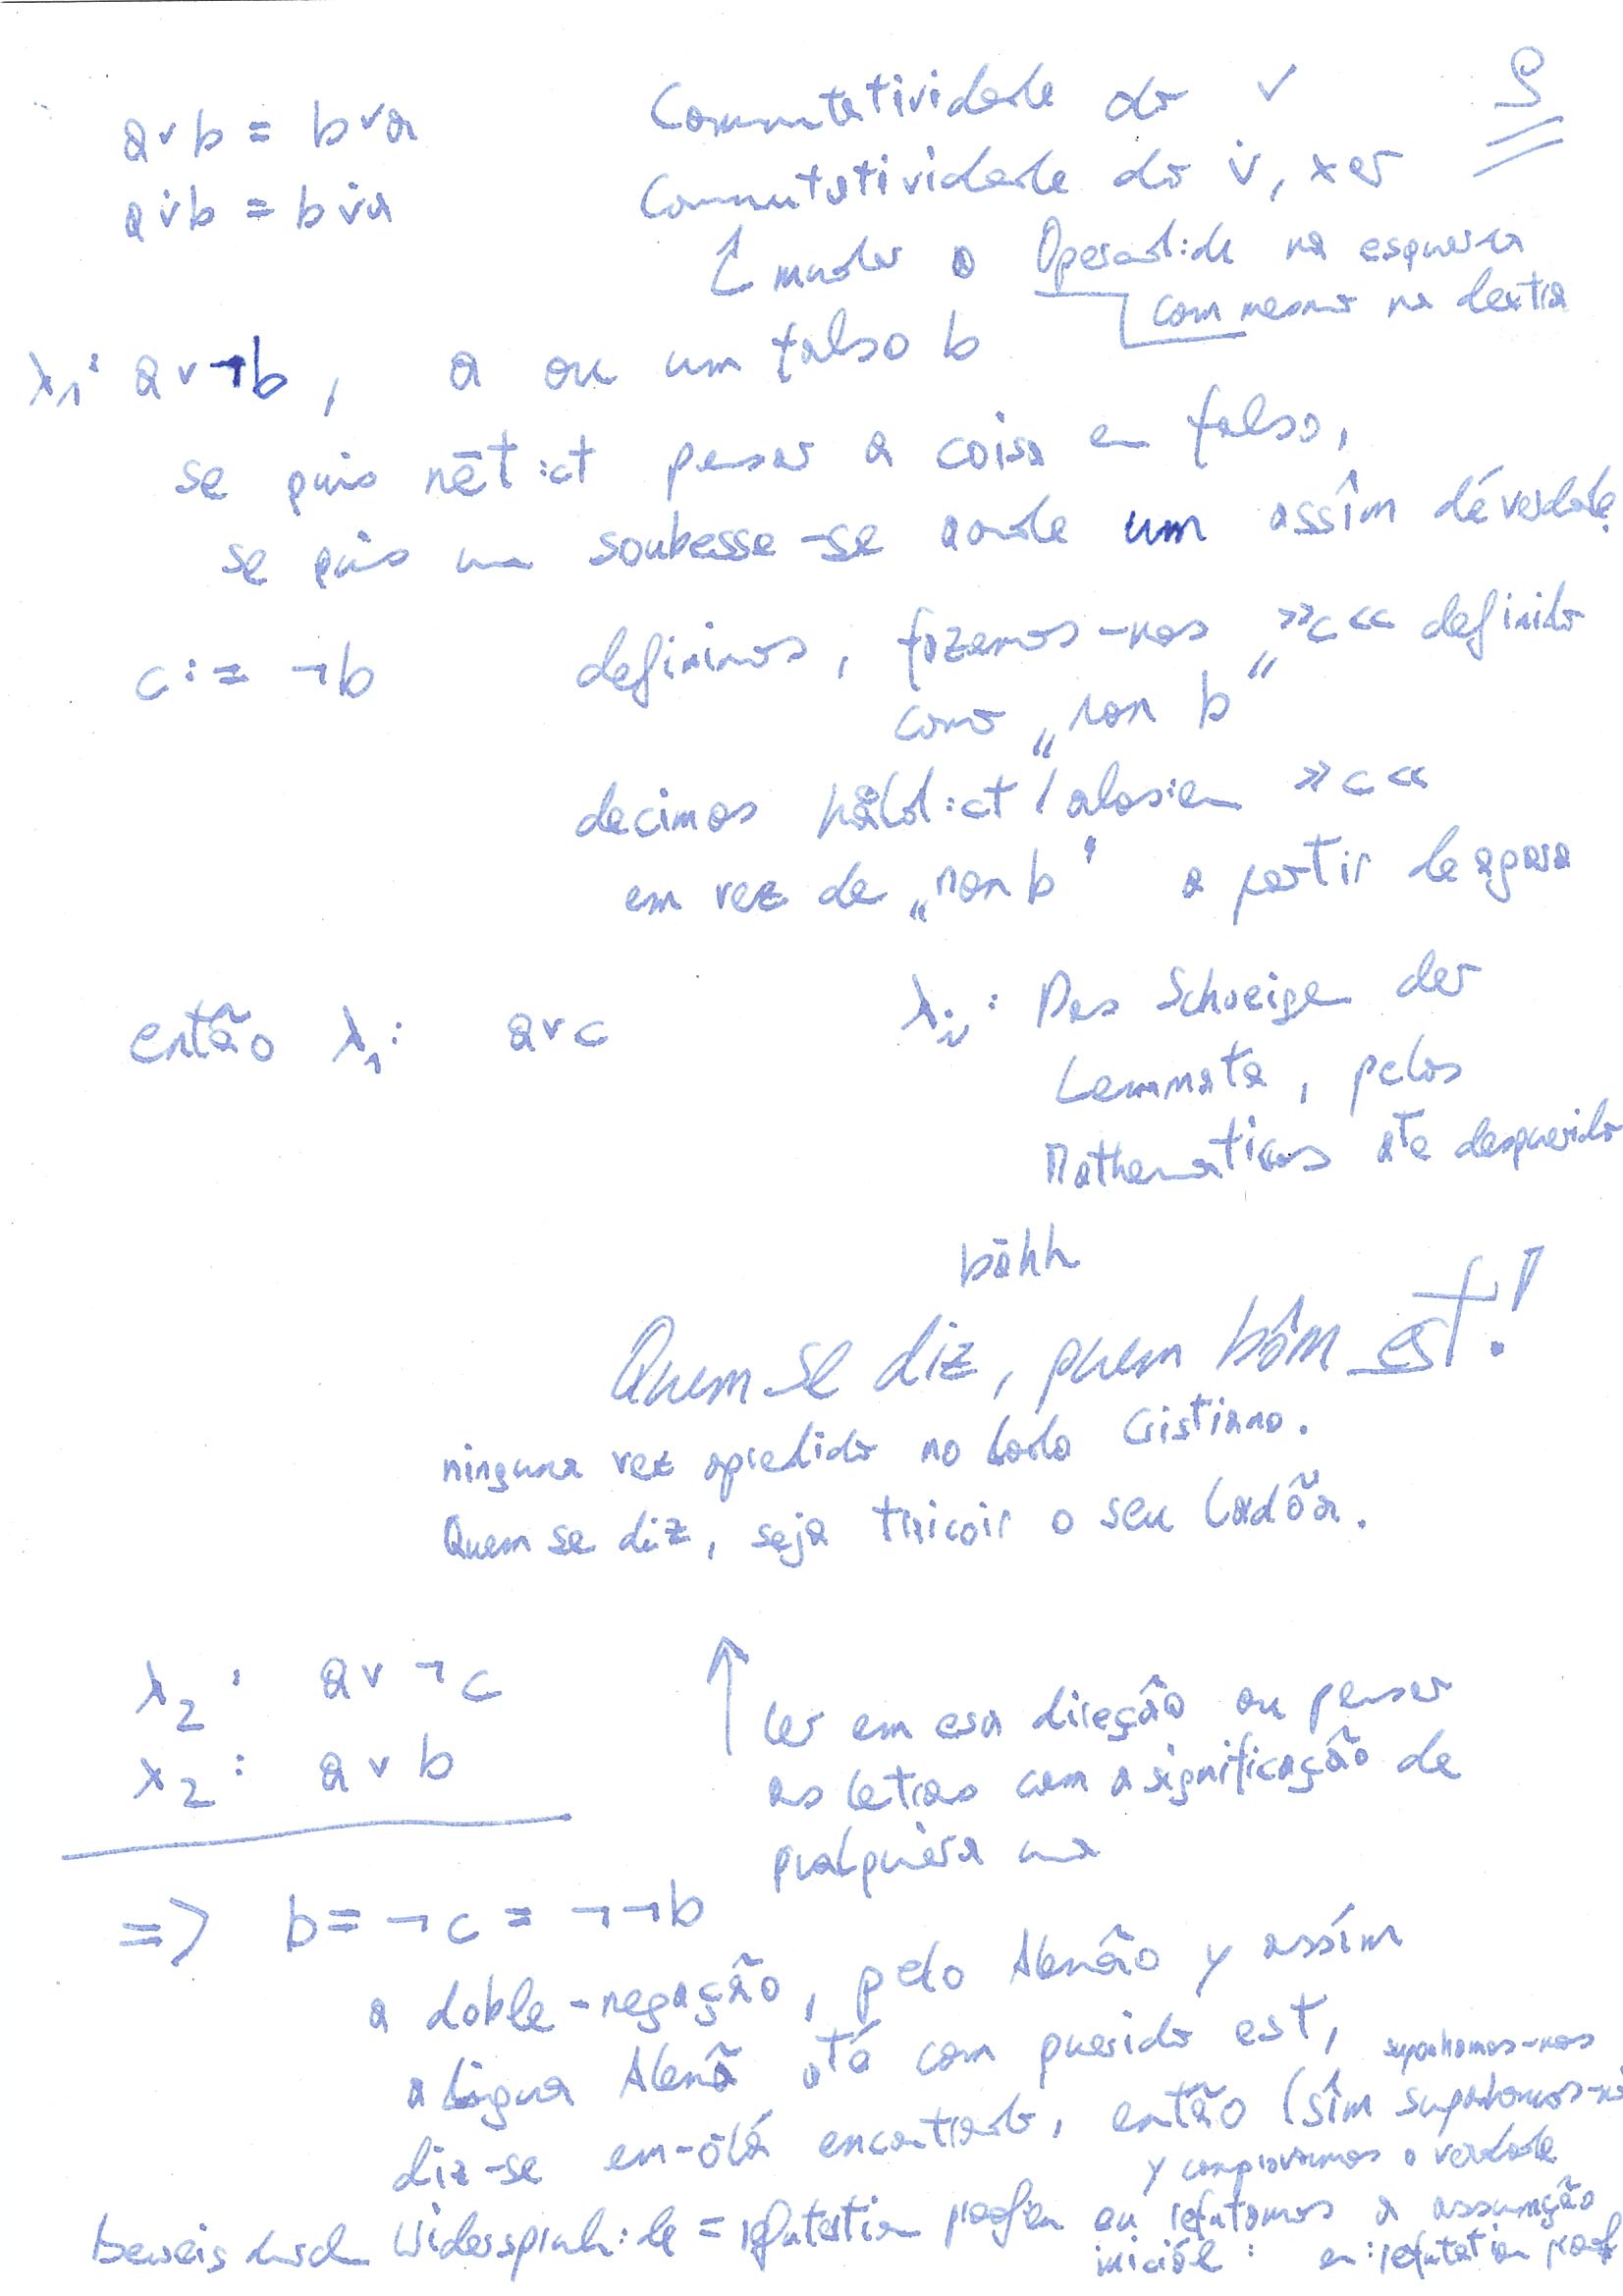 a∨b = b∨a Commutatividade do ∨ S
a∨̇b = b∨̇a Commutatividade do ∨̇, xor
mudar o Operand:de na esquerda
com mesmo na dextra
λ₁: a∨¬b, a ou um falso b
se quis nēt:ct pensar a coisa en falso,
se quis un soubesse-se aonde um assîm dé verdade
c := ¬b definimos, fazemos-nos „»c« definido
como „non b"
decimos hål:ct / »c«
em vez de „non b" a partir de agora
então λ₁: a∨c
λ: Das Schweigen der
Lemmata, pelos
Mathematicos ate desquerido
bähh
Quem se diz, quem bôm est!
ninguna vez no lado Cristiano.
Quem se diz, seja o seu Ladõa.
λ₂: a∨¬c
λ₂: a∨b
ler em esa direção ou pensar
as letras com a significação de
qualquiera una
=> b = ¬c = ¬¬b
a doble-negação, pelo Alemão y assím
a Língua Alemã até com querido est,
diz-se em-ōlá encontrado, então (sîm suponhamos-nos
suponhamos-nos
y comprovamos a verdade
beweis durch Widerspruch:de = refutation proof:en ou refutamos a assumção
iniciál: en:refutation proof